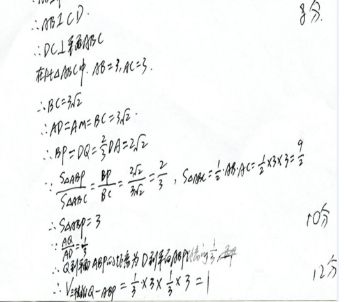 ∴AB⊥CD. 8分
∴DC⊥平面ABC
在Rt△ABC中 AB=3, AC=3.
∴BC=3√2
∴AD=AM=BC=3√2.
∴BP=DQ=2/3DA=2√2
∵ S△ABP/S△ABC=BP/BC=2√2/3√2=2/3, S△ABC=1/2·AB·AC=1/2×3×3=9/2
∴S△ABP=3 10分
∵AQ/AD=1/3
∴Q到平面ABP的距离为D到平面ABP 1/3
∴V Q-ABP=1/3×3×1/3×3=1 12分